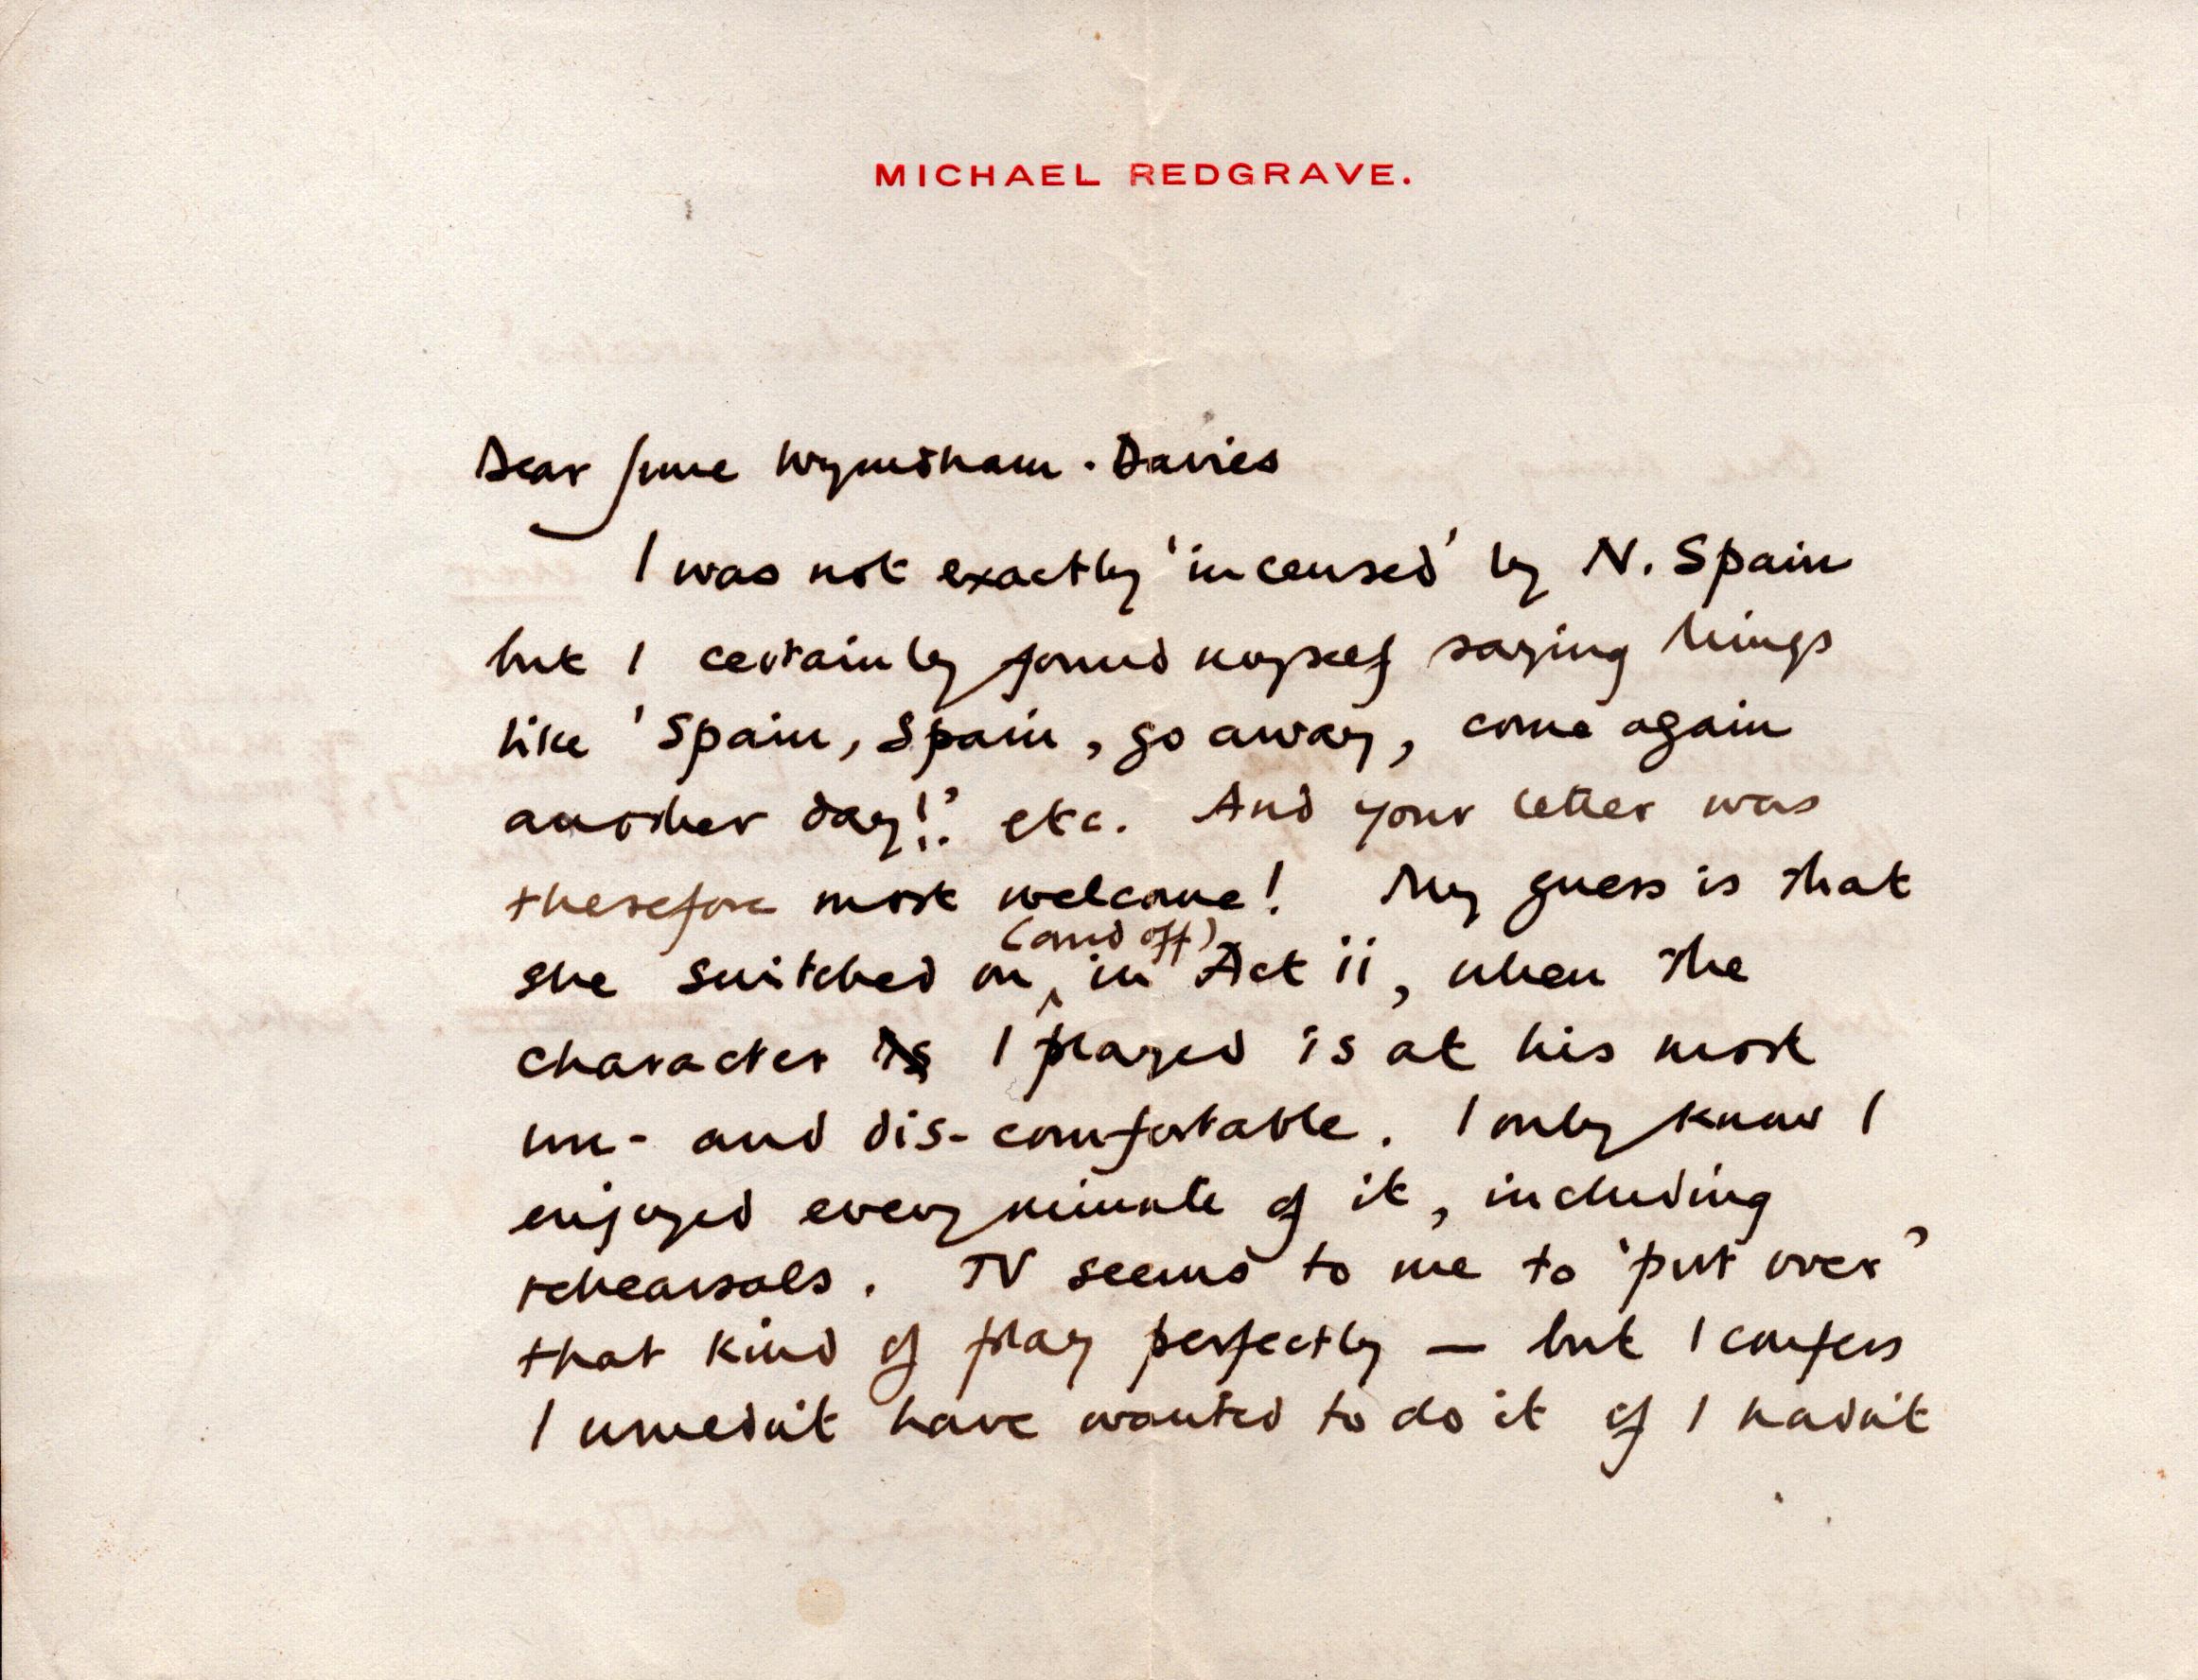 MICHAEL REDGRAVE.
Dear June Wyndham-Davies
I was not exactly 'incensed' by N. Spain
but I certainly found myself saying things
like 'Spain, Spain, go away, come again
another day!.' etc. And your letter was
therefore most welcome! My guess is that
(and off)
she switched on in Act ii, when the
character I played is at his most
un- and dis-comfortable. I only know I
enjoyed every minute of it, including
rehearsals. TV seems to me to 'put over'
that kind of play perfectly — but I confess
I wouldn't have wanted to do it if I hadn't